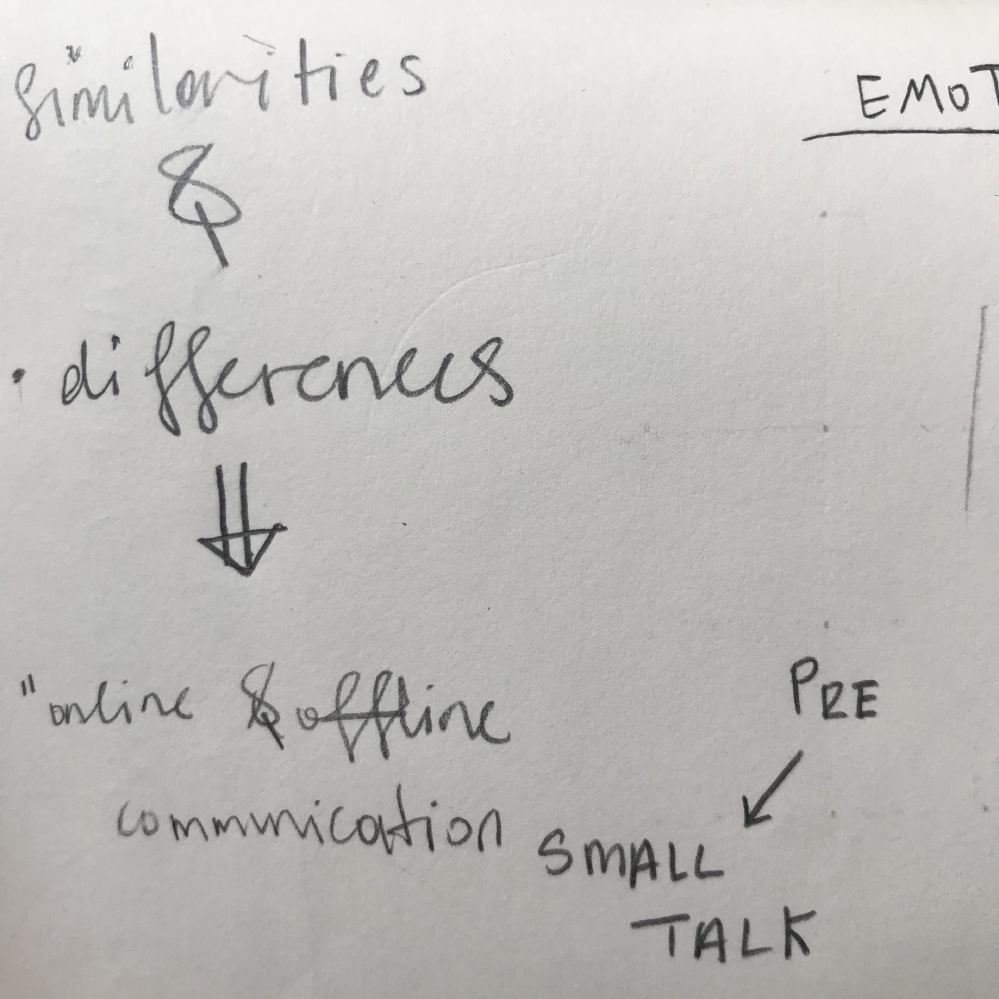 similarities
&
· differences
"online & offline
communication
EMOT
PRE
SMALL
TALK